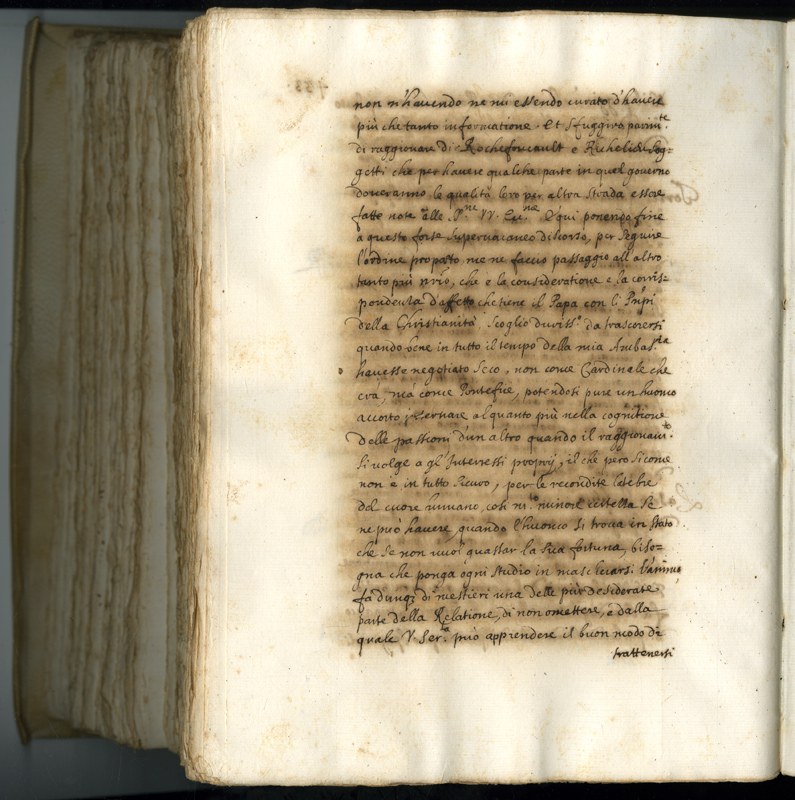 non n'havendo ne mi essendo curato d'havere
più che tanto informatione. Et sfuggirò parim.te
di raggionare di Rochefoucault e Richelieu sog=
getti che per havere qualche parte in quel governo
doveranno le qualità loro per altra strada essere
fatte note alle VV. Ecc.nze E qui ponendo fine
a questo forse supervacaneo discorso, per seguire
l'ordine proposto me ne faccio passaggio all'altro
tanto più che è la consideratione e la corris=
pondenza d'affetto che tiene il Papa con li Pnpi
della Christianità. Scoglio duriss.o da trascorersi
quando bene in tutto il tempo della mia Ambas.ta
havesse negotiato seco, non come Cardinale che
era, ma come Pontefice, potendosi pure un huomo
accorto osservare alquanto più nella cognitione
delle passioni d'un altro quando il raggionam.to
si volge a gl'Interessi proprij, il che però sicome
non è in tutto sicuro, per le recondite latebre
del cuore humano, così m.to minore certezza se
ne può havere, quando l'huomo si trova in stato
che se non vuol guastar la sua fortuna, biso=
gna che ponga ogni studio in mascherarsi l'animo
fa dunq; di mestieri una delle più desiderate
parte della Relatione, di non omettere, e dalla
quale V. Ser.tà può apprendere il buon modo di
trattenersi